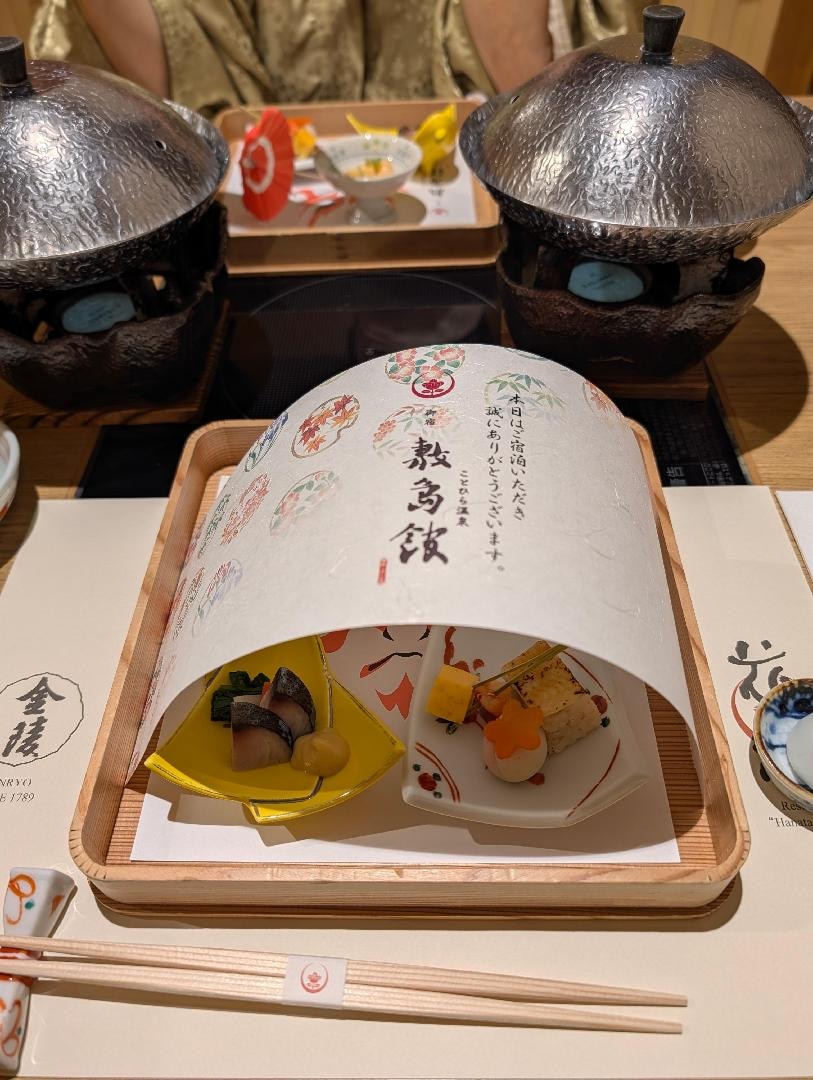 本日はご宿泊いただき
誠にありがとうございます。
ことひら温泉
御宿
敷島館
金陵
NRYO
E 1789
花
Res
"Hanata